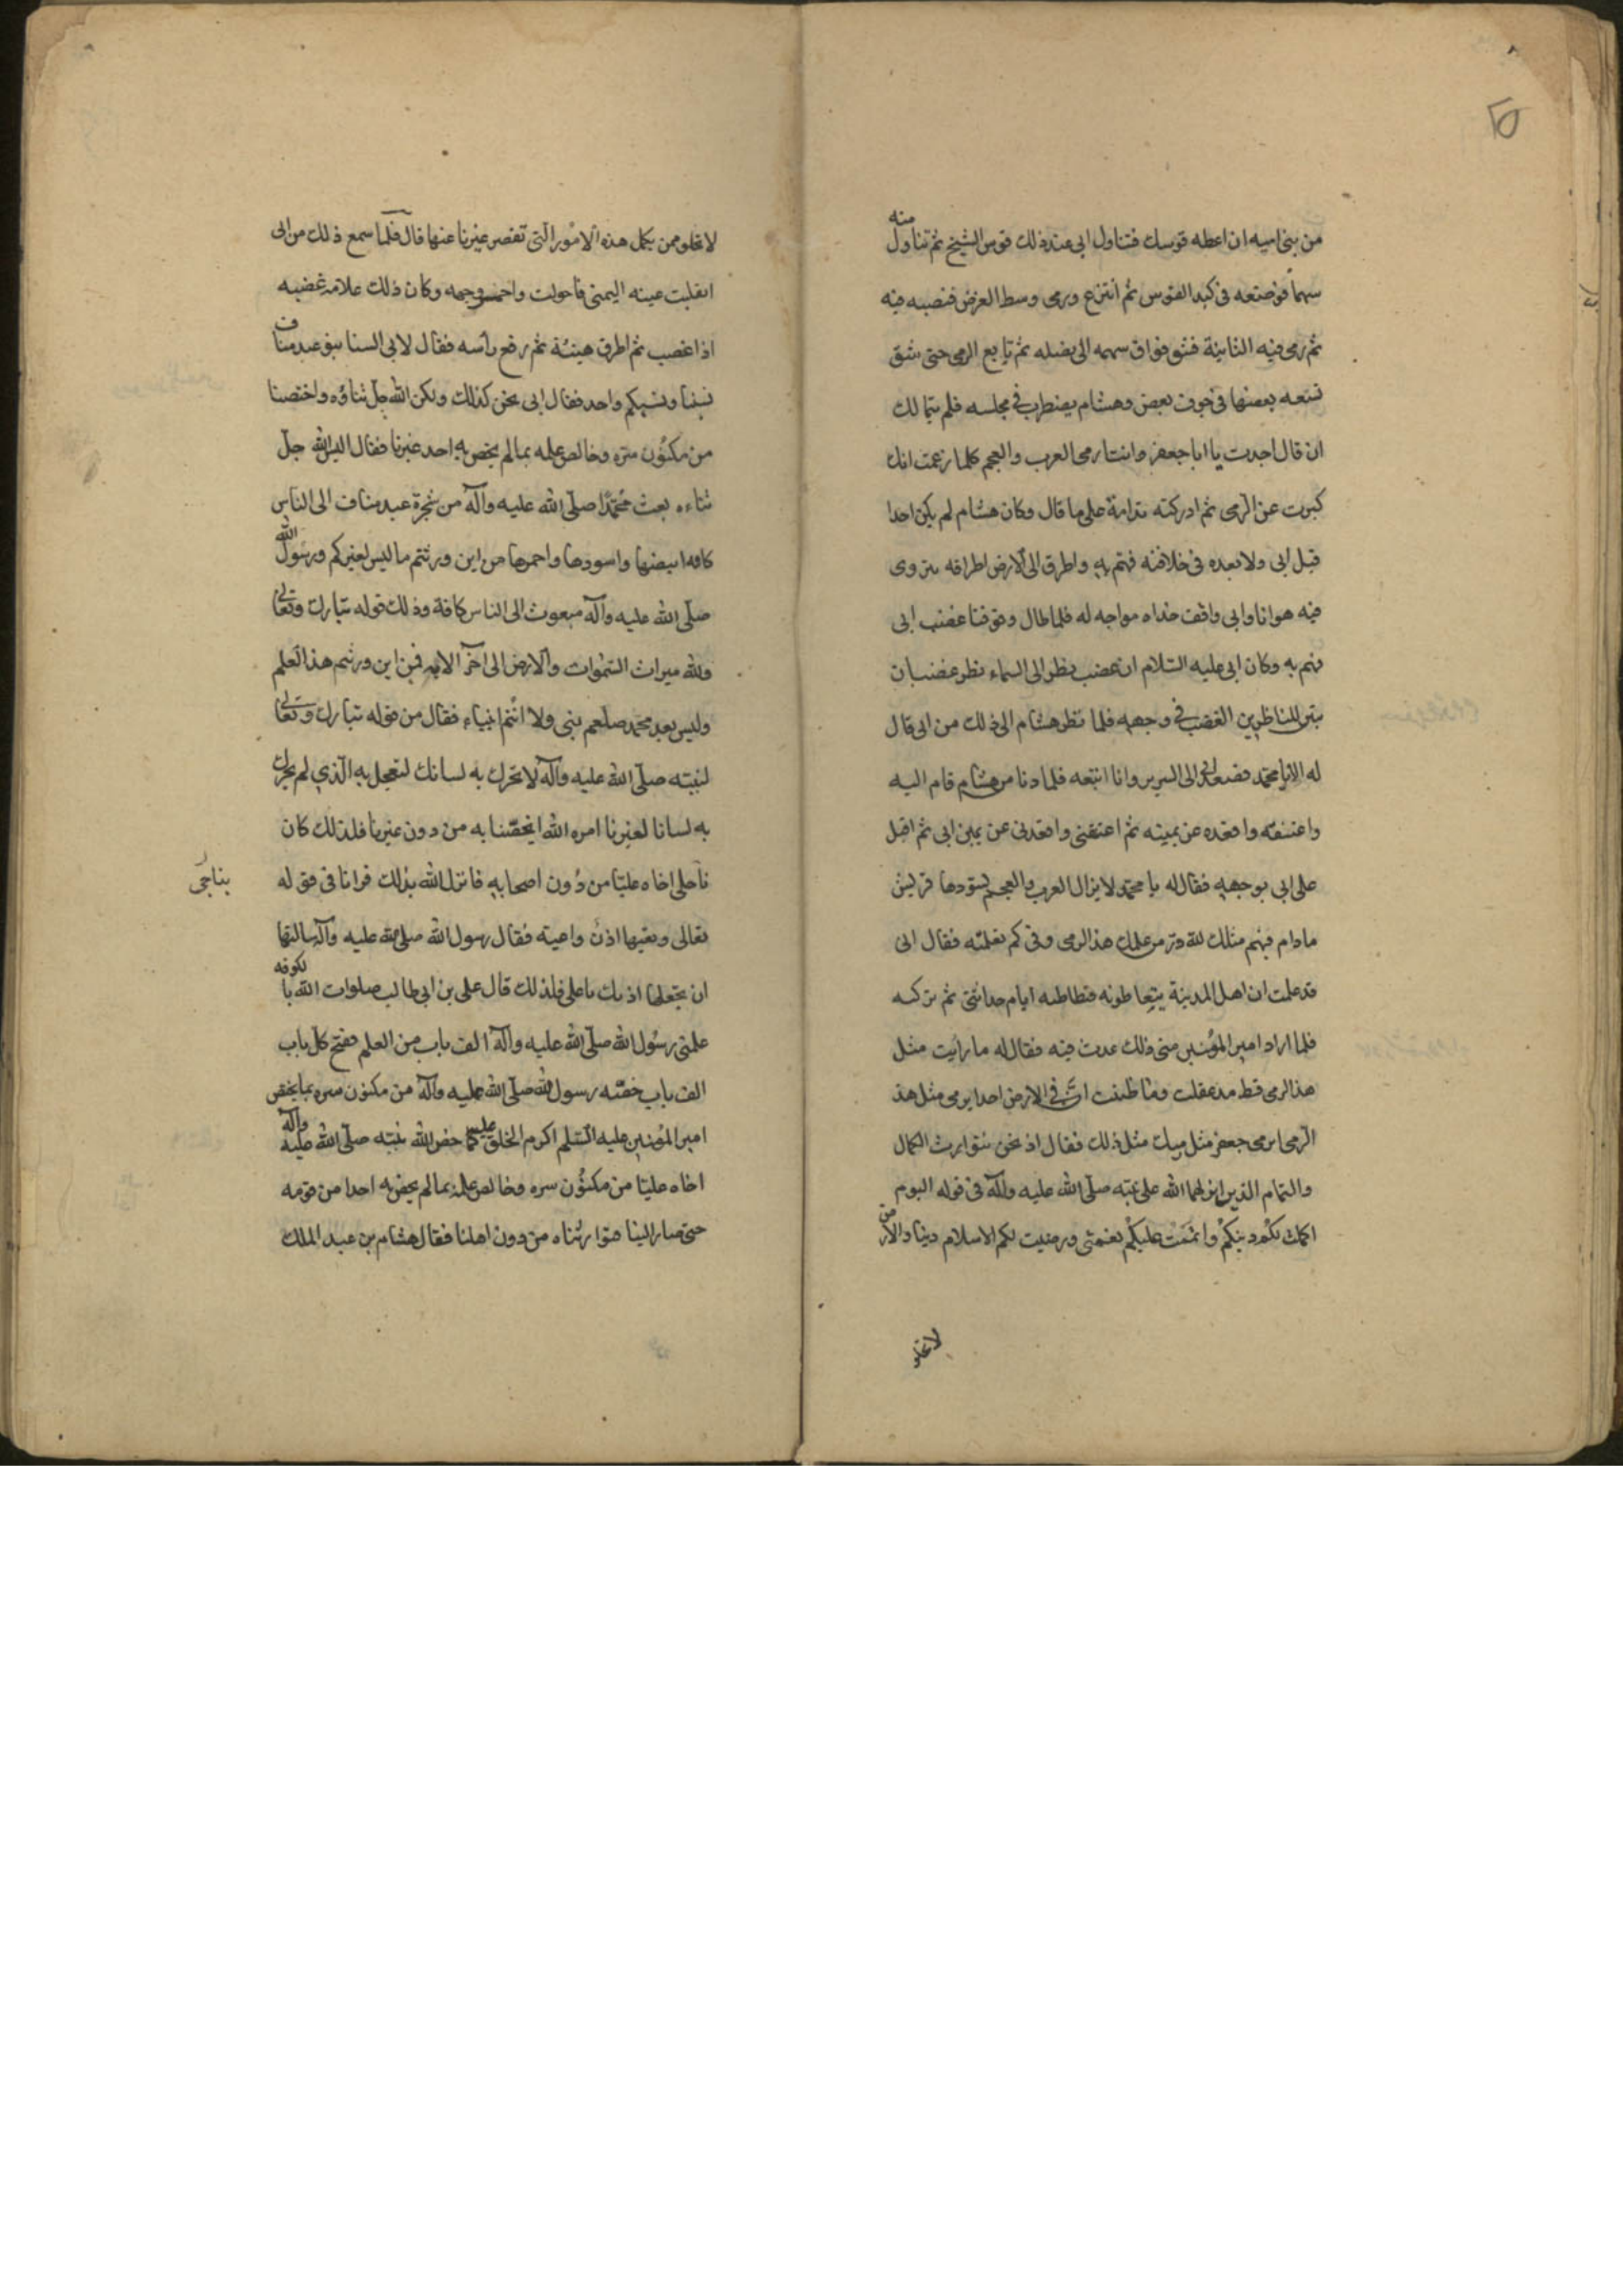 من بنی امیه ان اعطه قوسك فتناول ابی عند ذلك قوس الشیخ ثم تناول منه
سهماً فوضعه فی كبد القوس ثم انتزع ورمی وسط الغرض فنصبه فیه
ثم رمی فیه الثانیة فشق فواق سهمه الی نصله ثم تابع الرمی حتی شق
تسعه بعضها فی جوف بعض وهشام یضطرب فی مجلسه فلم یتمالك
ان قال اجدت یا ابا جعفر وانت ارمی العرب والعجم كلما زعمت انك
كبرت عن الرّمی ثم ادركته ندامة علی ما قال وكان هشام لم یكن احدا
قبل ابی ولا بعده فی خلافته فهتم به واطرق الی الارض اطراقه یتروی
فیه هوانا وابی واقف حذاه مواجه له فلما طال وقوفنا غضب ابی
فهم به وكان ابی علیه السّلام ان غضب نظر الی السماء نظر غضبان
یتبین للناظرین الغضب فی وجهه فلما نظر هشام الی ذلك من ابی قال
له الیّ یا محمّد فصعد ابی الی السریر وانا اتبعه فلما دنا من هشام قام الیه
واعتنقه واقعده عن یمینه ثم اعتنقنی واقعدنی عن یمین ابی ثم اقبل
علی ابی بوجهه فقال له یا محمّد لا یزال العرب والعجم یسودها قریش
مادام فیهم مثلك لله درّ من علمك هذا الرمی وفی كم تعلمته فقال ابی
قد علمت ان اهل المدینة یتعاطونه فتعاطیته ایام حداثتی ثم تركته
فلما اراد امیر المؤمنین منی ذلك عدت فیه فقال له ما رایت مثل
هذا الرمی قط مذ عقلت وما ظننت انّ فی الارض احدا یرمی مثل هذ
الرّمی ایرمی جعفر مثل رمیك مثل ذلك فقال اذ نحن نتوارث الكمال
والتمام الذین انزلهما الله علی نبیّه صلّی الله علیه وآله فی قوله الیوم
اكملت لكم دینكم واتممت علیكم نعمتی ورضیت لكم الاسلام دینا والارض
لا تخلو
لا تخلو ممن یكمل هذه الامور الّتی تقصر غیرنا عنها قال فلمّا سمع ذلك من ابی
انقلبت عینه الیمنی فاحولت واحمر وجهه وكان ذلك علامة غضبه
اذا غضب ثم اطرق هنیئة ثم رفع رأسه فقال لابی السنا بنو عبد مناف
نسبنا ونسبكم واحد فقال ابی نحن كذلك ولكن الله جلّ ثناؤه واختصنا
من مكنون سرّه وخالص علمه بما لم یخص به احد غیرنا فقال الیس الله جلّ
ثناءه بعث محمّدا صلّی الله علیه وآله من شجرة عبد مناف الی الناس
كافه ابیضها واسودها واحمرها من این ورثتم ما لیس لغیركم ورسول الله
صلّی الله علیه وآله مبعوث الی الناس كافة وذلك قوله تبارك وتعالی
ولله میراث السّموات والارض الی اخر الایه فمن این ورثتم هذا العلم
ولیس بعد محمد صلعم نبی ولا انتم انبیاء فقال من قوله تبارك وتعالی
لنبیّه صلّی الله علیه وآله لا تحرك به لسانك لتعجل به الّذی لم یحرك
به لسانا لغیرنا امره الله ان یخصّنا به من دون غیرنا فلذلك كان
یناجی
ناجی اخاه علیّا من دون اصحابه فانزل الله بذلك قرانا فی قوله
تعالی وتعیها اذن واعیته فقال رسول الله صلی الله علیه وآله سالتها
ان یجعلها اذنك یا علی فلذلك قال علی بن ابی طالب صلوات الله بالكوفه
علمنی رسول الله صلّی الله علیه وآله الف باب من العلم ففتح كلّ باب
الف باب خصّه رسول الله صلّی الله علیه وآله من مكنون سره بما یخص
امیر المؤمنین علیه السّلم اكرم الخلق علیه كما خص الله نبیّه صلّی الله علیه وآله
اخاه علیّا من مكنون سره وخالص علمه بما لم یخص به احدا من قومه
حتی صار الینا فتوارثناه من دون اهلنا فقال هشام بن عبد الملك